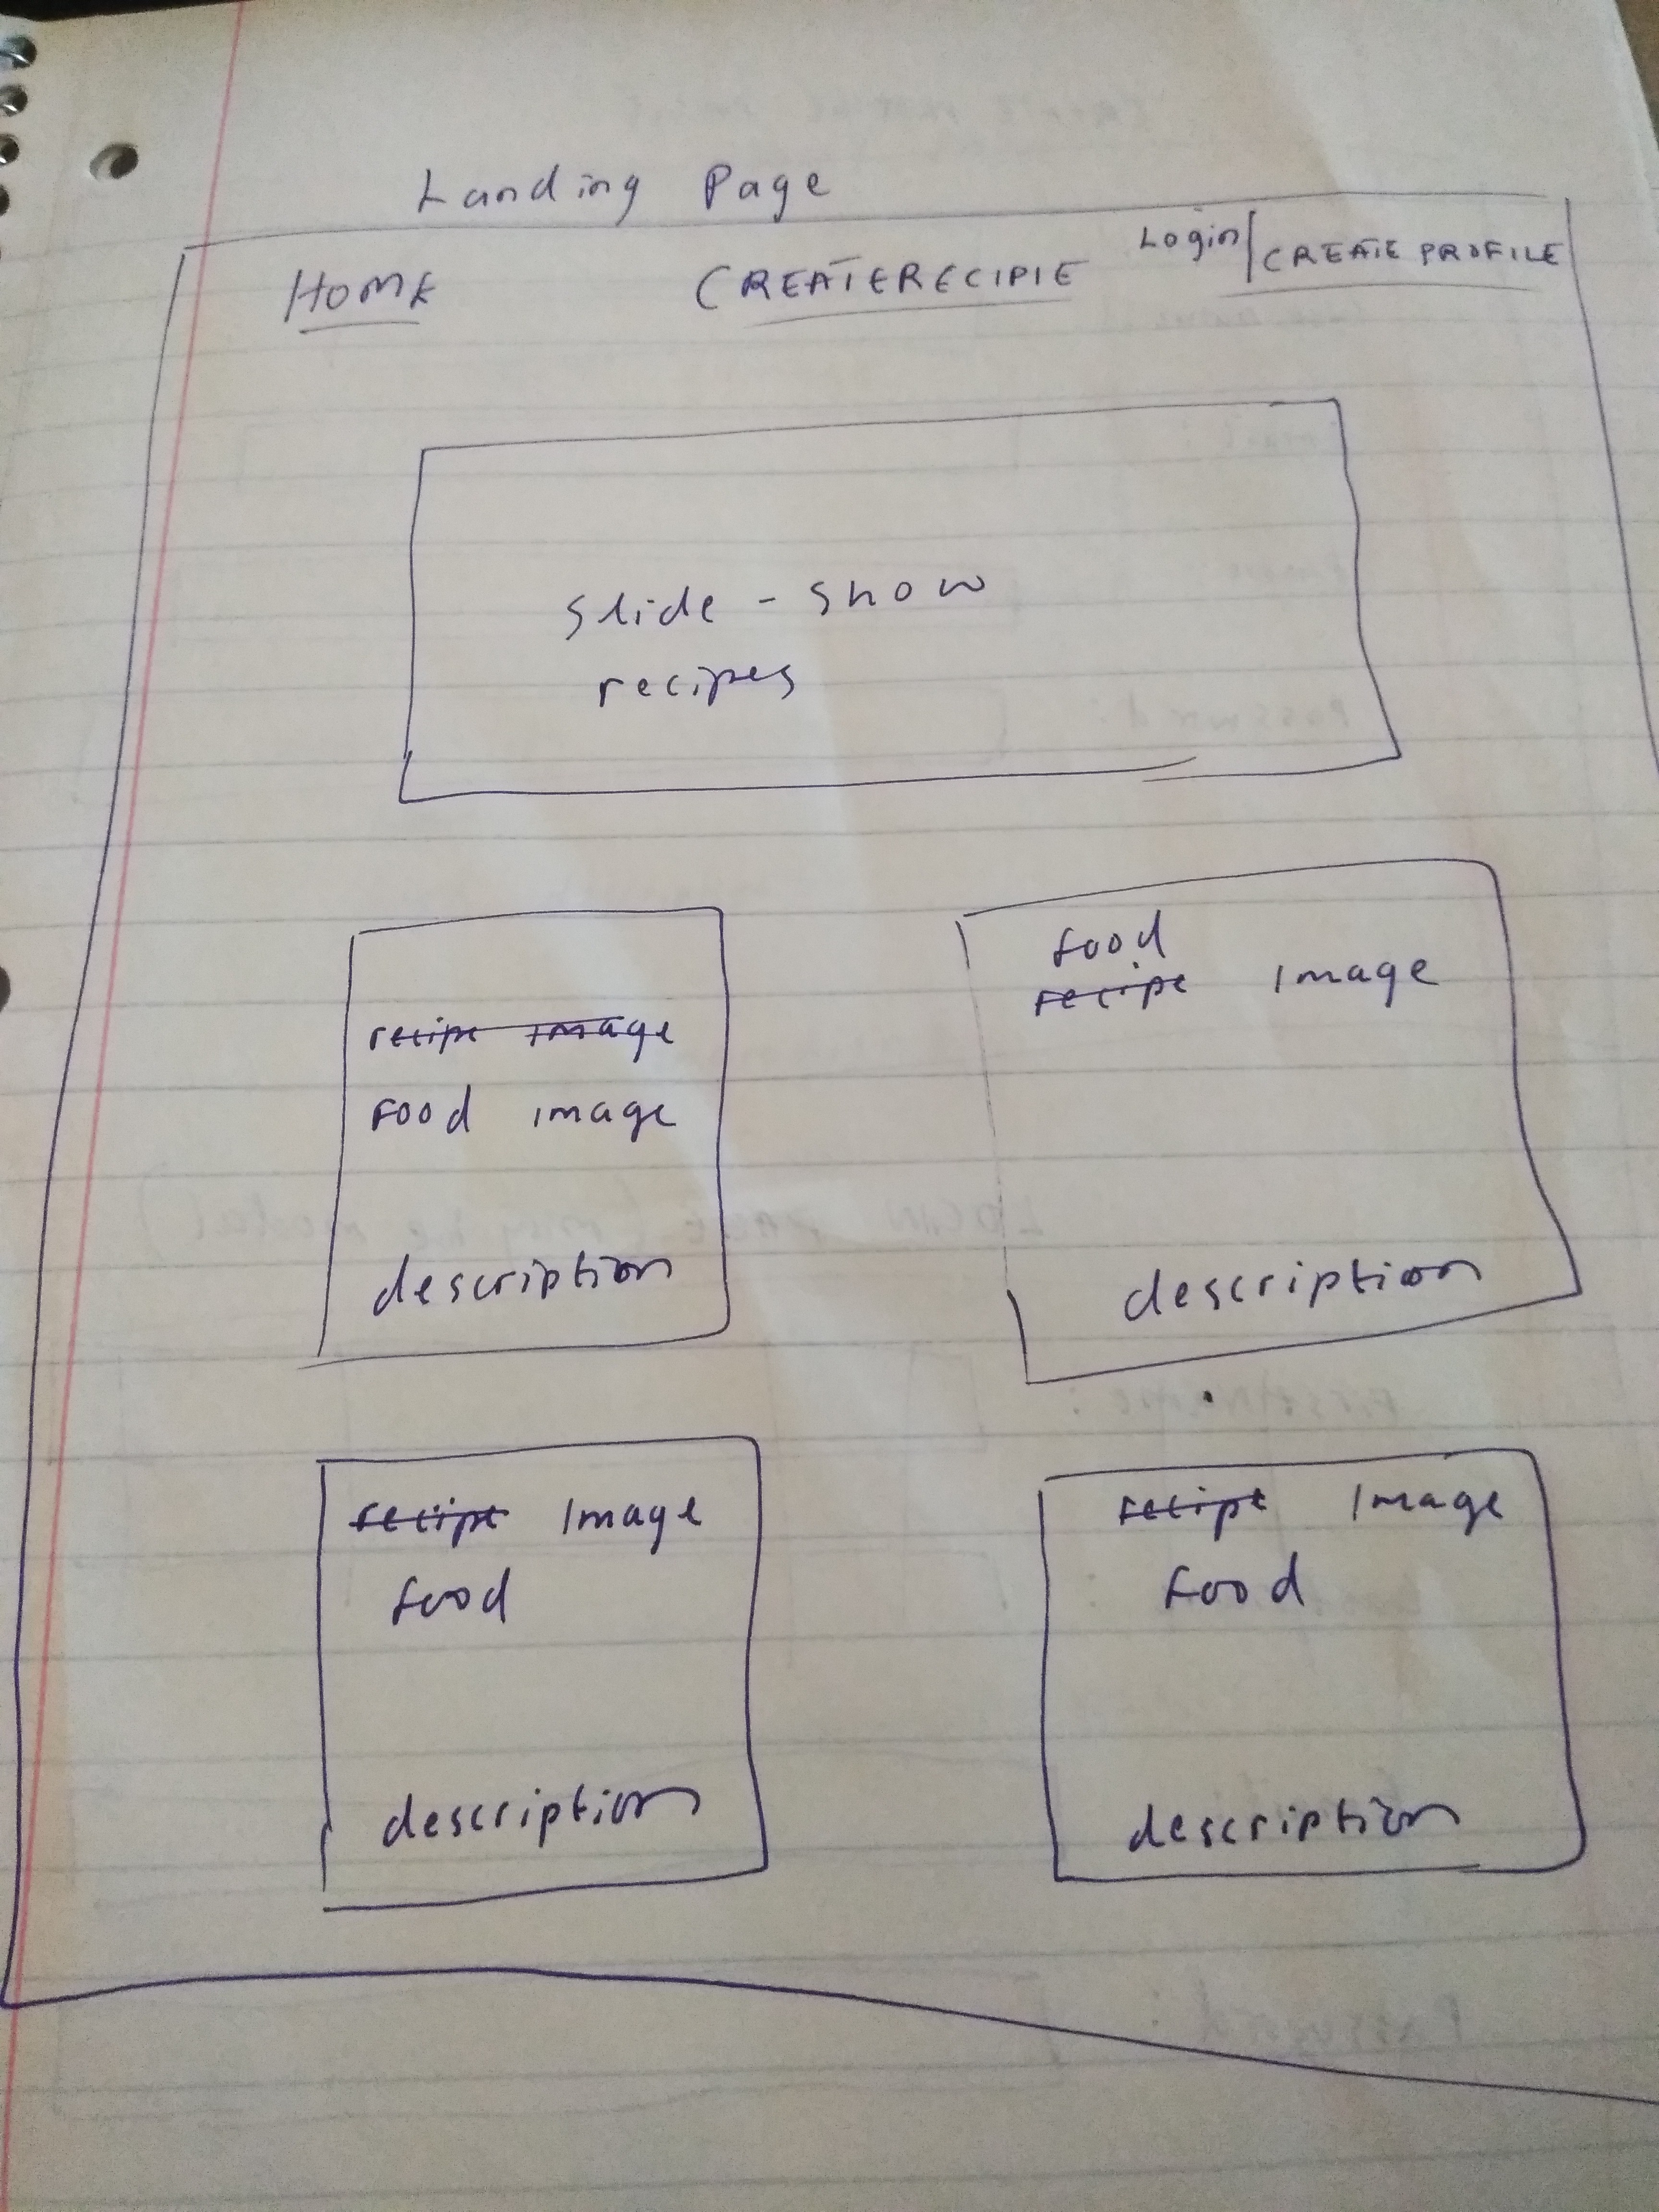 Landing Page
HOME CREATERECIPIE Login | CREATE PROFILE
slide - show
recipes
recipe image
FOOD image
description
food
recipe image
description
recipe image
food
description
recipe image
food
description
LOGIN PAGE (maybe modal)
Password:
Password: